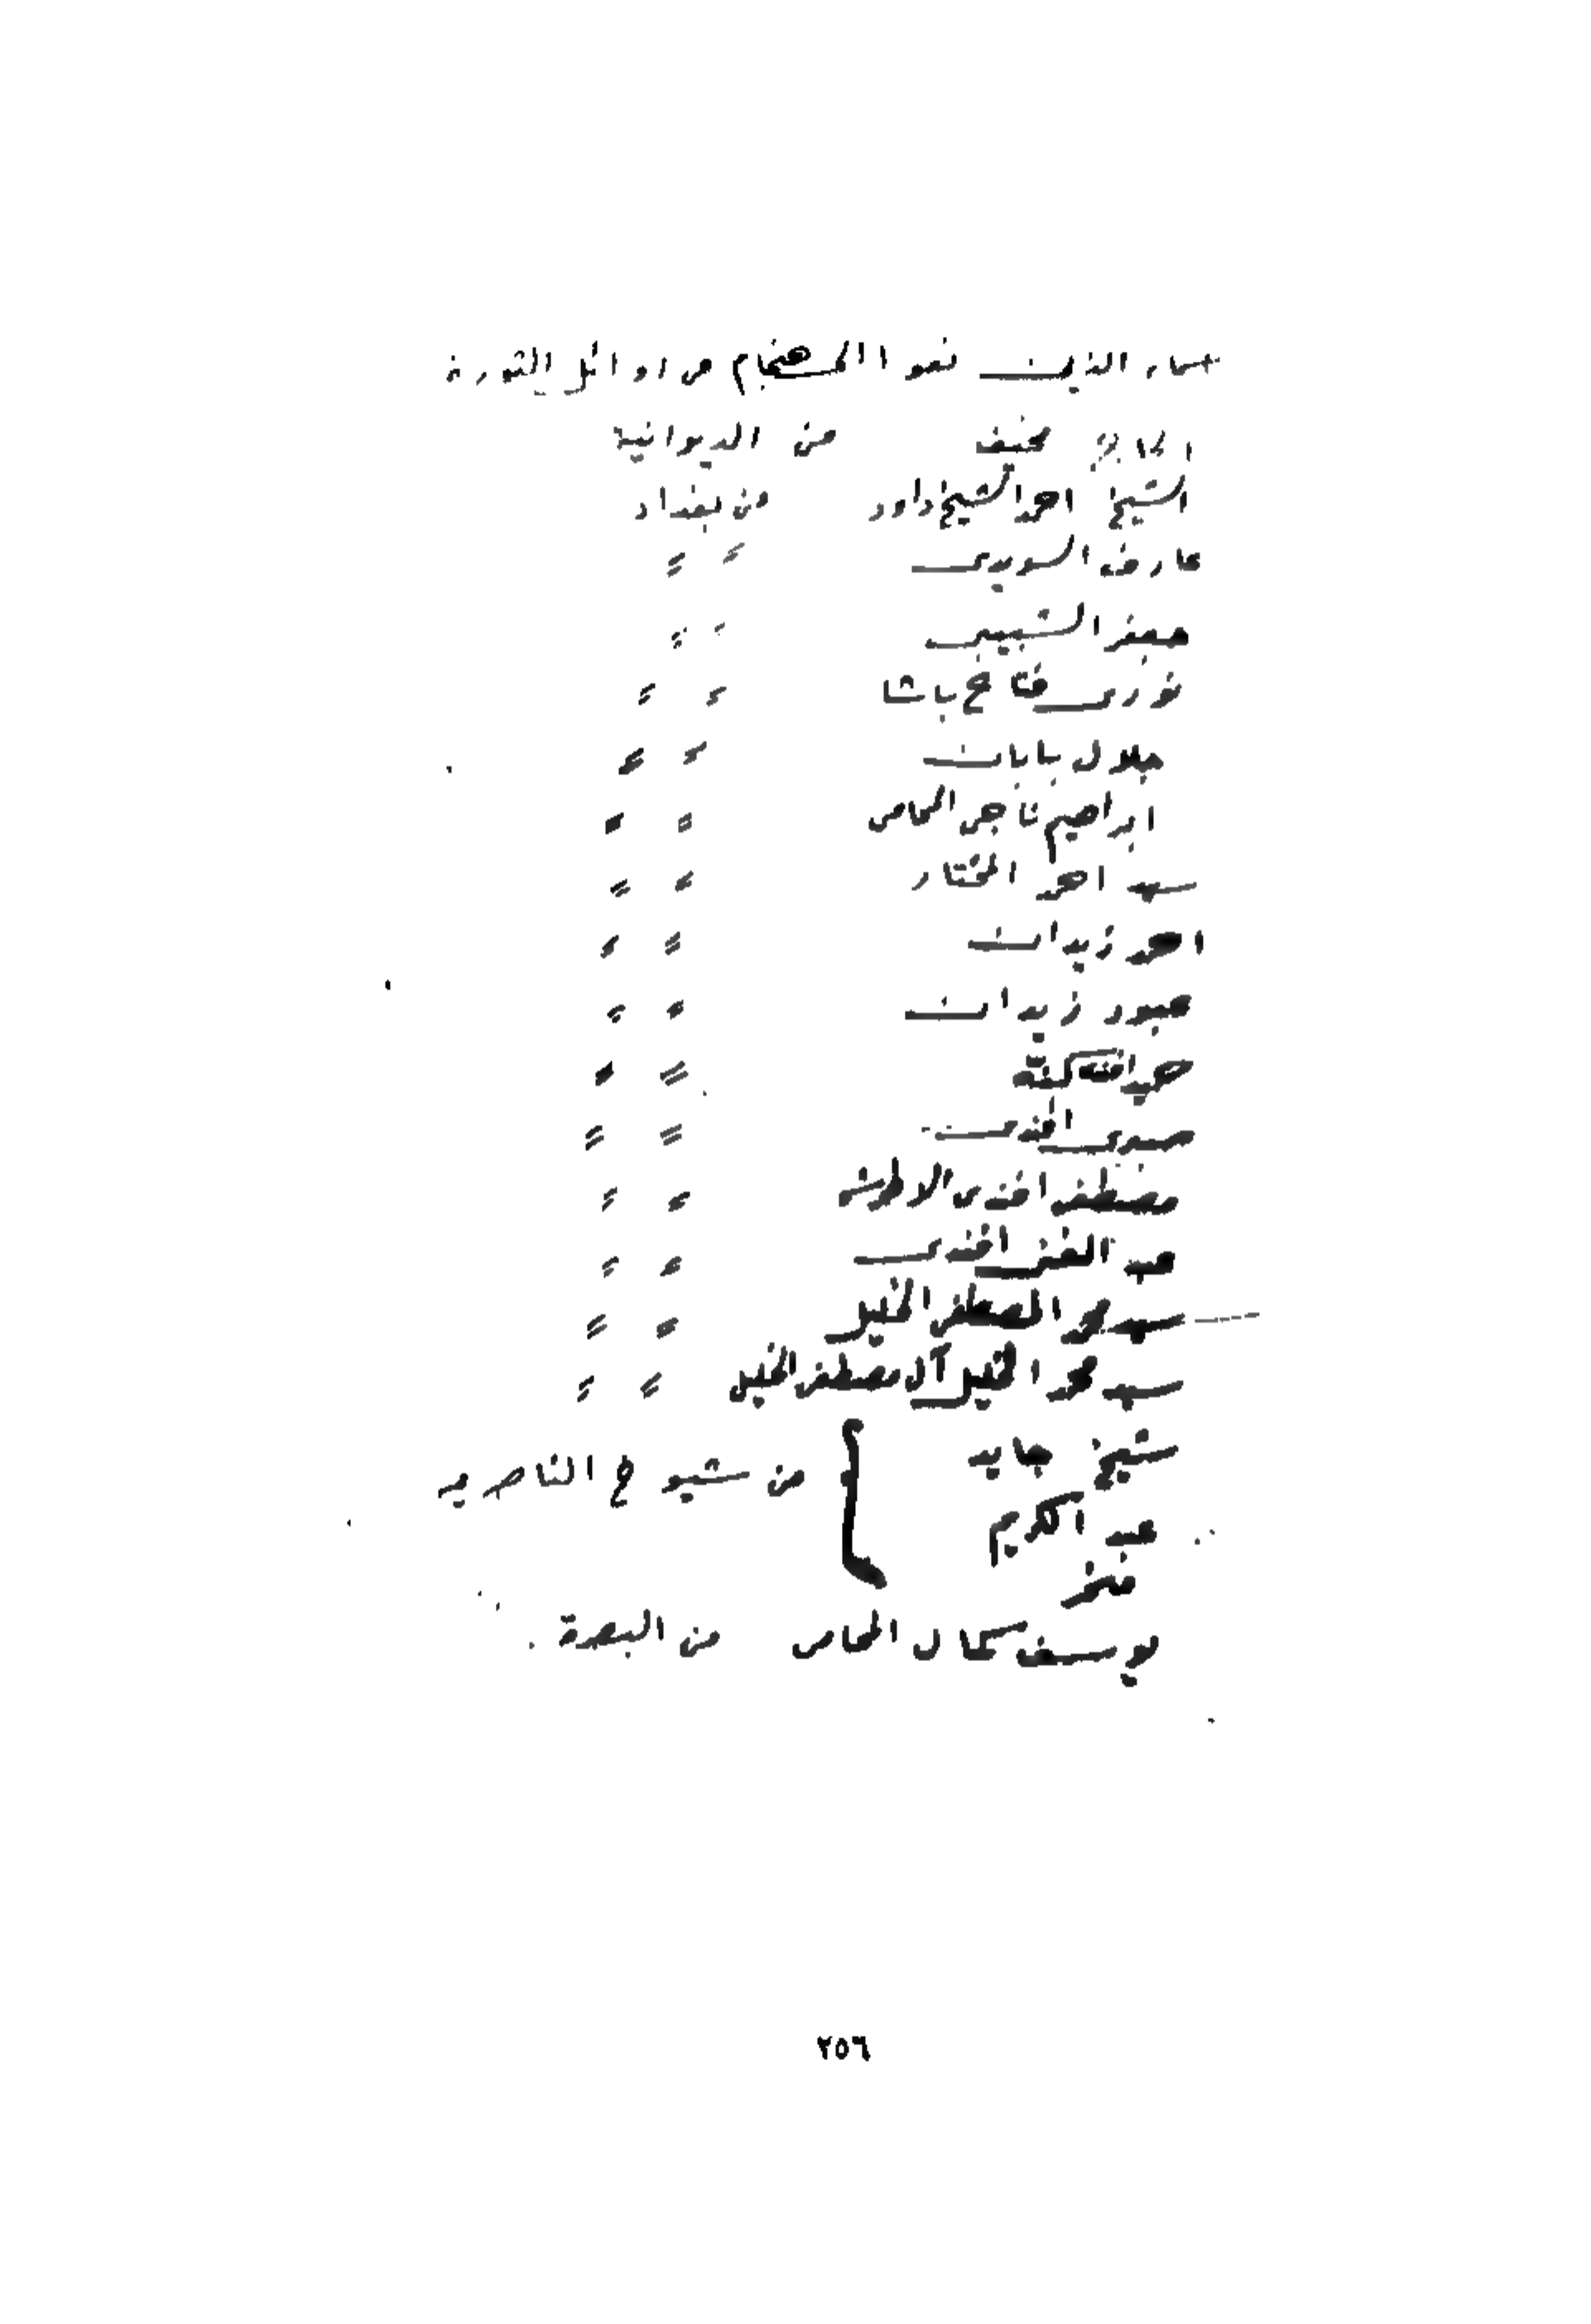 اسماء الذين نفوا الى هنجام في اوائل الثورة
الحاج مخيف من الديوانية
الشيخ احمد الشيخ داود من بغداد
عارف السويدي " "
جعفر الشبيبي " "
نوري فتاح باشا " "
جلال بابان " "
ابراهيم ناجي المحامي " "
سيد احمد المختار " "
احمد زيدان " "
عبود زيدان " "
حميد افندي كنه " "
صبري افندي " "
مصطفى افندي الاطرش " "
عبد الغني افندي " "
سيد محمد المصطفى الخليل " "
سيد محمد الخليل آل مصطفى الخليل " "
شيخ جايد
عبد الكريم من شيوخ الناصرية
يوسف كمال المحامي من البصرة
٢٥٦